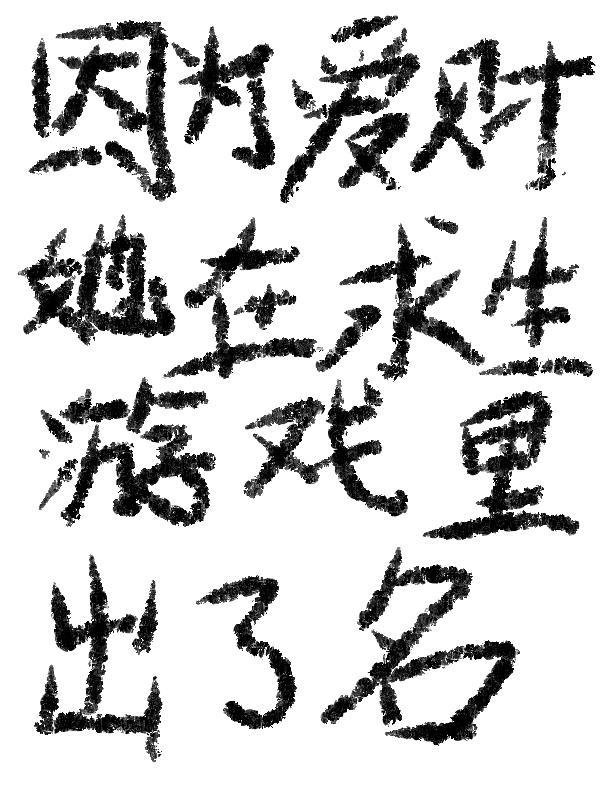 因为爱财
她在求生
游戏里
出了名